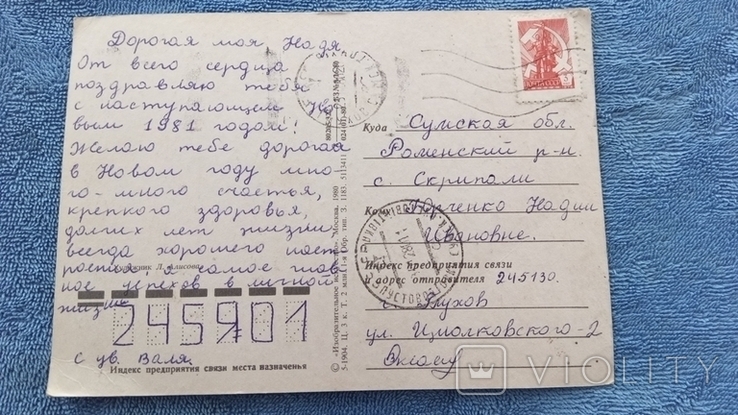 Дорогая моя Надя,
От всего сердца
поздравляю тебя
с наступающем Но-
вым 1981 годом!
Желаю тебе дорогая
в Новом году мно-
го-много счастья,
крепкого здоровья,
долгих лет жизни
всегда хорошего наст-
роения и самое глав-
ное успехов в личной
жизни
с ув. Валя.
Индекс предприятия связи места назначенья
«Изобразительное искусство». Москва. 1980
Куда Сумская обл.
Роменский р-н.
с. Скрипали
Кому Надии
Ивановне.
Индекс предприятия связи
и адрес отправителя 245130.
г. Глухов
ул. Циолковского-2
VIOLITY